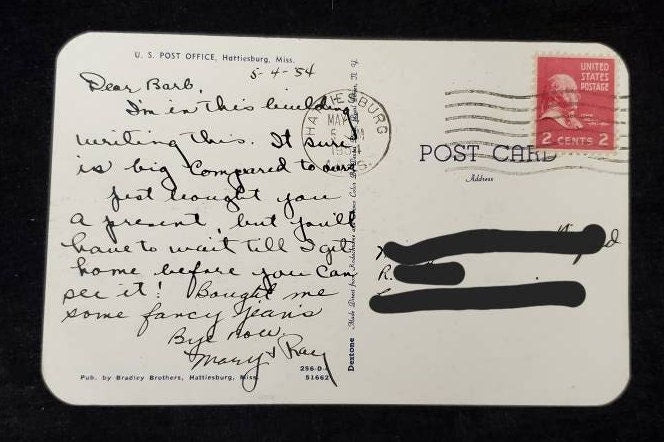 U. S. POST OFFICE, Hattiesburg, Miss.
5-4-54
Dear Barb,
I'm in this building
writing this. It sure
is big compared to ours
Just bought you
a present, but you'll
have to wait till I get
home before you can
see it! Bought me
some fancy jeans
Bye now
Mary & Ray
Pub. by Bradley Brothers, Hattiesburg, Miss.
256-D-
S1662
Dextone
HATTIESBURG
MAY
5
1954
UNITED
STATES
POSTAGE
2 CENTS 2
POST CARD
Address
R.